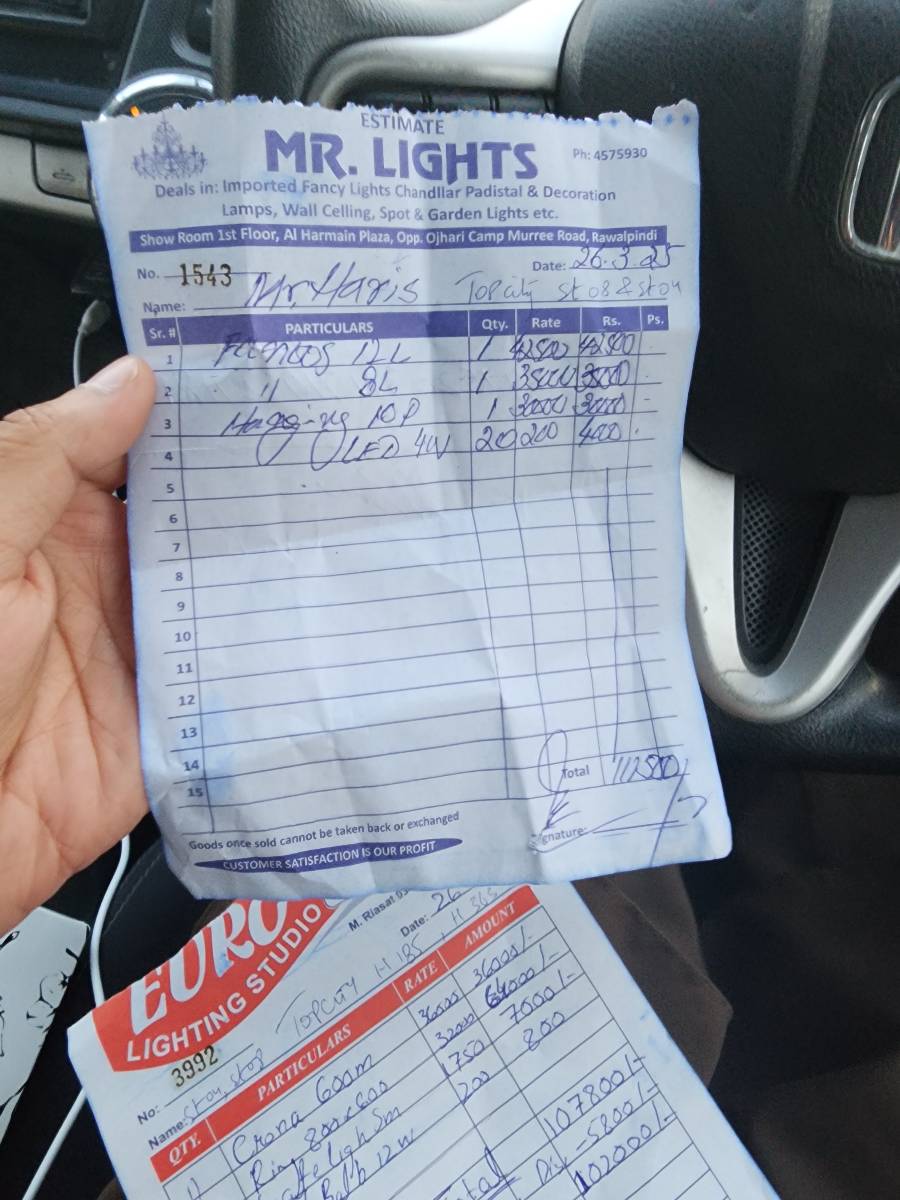 ESTIMATE
MR. LIGHTS
Ph: 4575930
Deals in: Imported Fancy Lights Chandllar Padistal & Decoration
Lamps, Wall Celling, Spot & Garden Lights etc.
Show Room 1st Floor, Al Harmain Plaza, Opp. Ojhari Camp Murree Road, Rawalpindi
No. 1543 Date: 26.3.25
Name: Mr. Haris Topcity st 08 & st 04
Sr. # PARTICULARS Qty. Rate Rs. Ps.
1 12L 1 42500 42500
2 " 8L 1 35000 35000
3 Hanging 10P 1 30000 30000
4 LED 4W 20 200 4000
5
6
7
8
9
10
11
12
13
14
15
Total 112500/
Signature:
Goods once sold cannot be taken back or exchanged
CUSTOMER SATISFACTION IS OUR PROFIT
EURO
LIGHTING STUDIO
M. Riasat 03
Date: 26
No: 3992 Topcity H 185 + H 363
Name: st 04, st 08
QTY. PARTICULARS RATE AMOUNT
Crona 600m 36000 36000/-
Ring 800x600 32000 64000/-
1750 7000/-
Bulb 12W 200 800
Total 107800/-
Dis -5800/-
102000/-